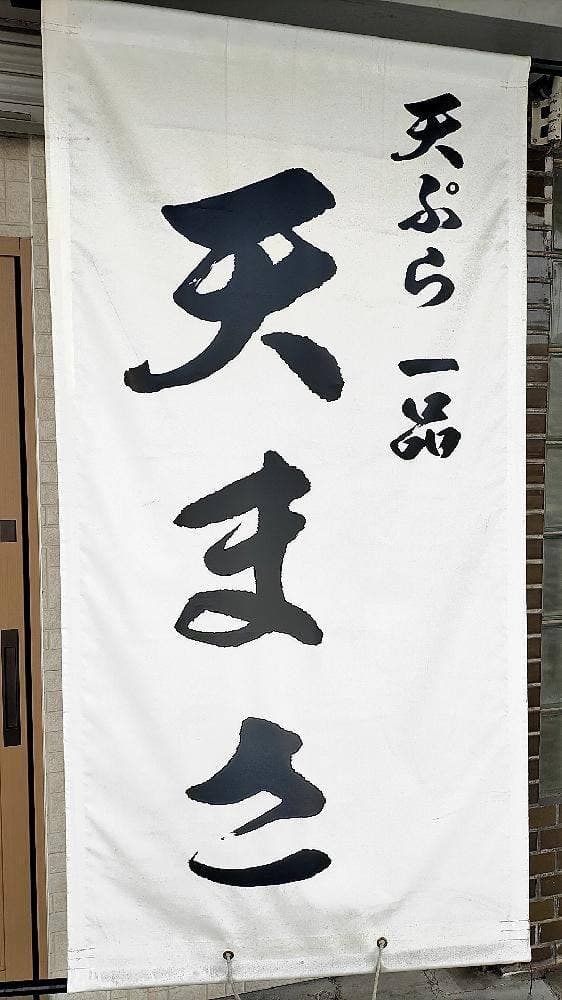 天ぷら 一品
天まさ